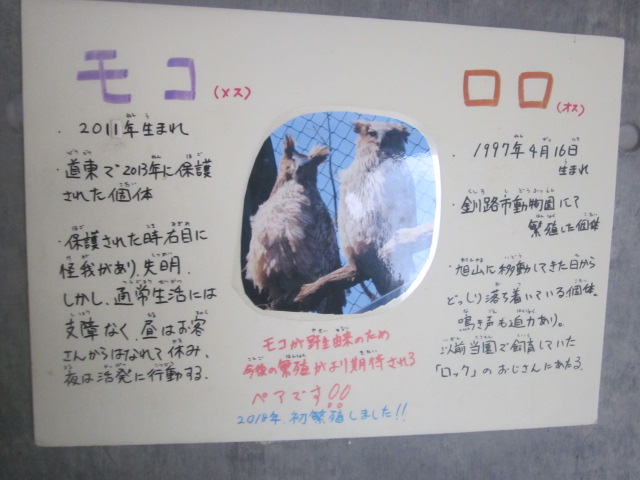 モコ(メス)
・2011年生まれ
・道東で2013年に保護
された個体
・保護された時右目に
怪我があり、失明.
しかし、通常生活には
支障なく、昼はお客
さんからはなれて休み、
夜は活発に行動する.
モコが野生由来のため
今後の繁殖がより期待される
ペアです!!
2018年、初繁殖しました!!
ロロ(オス)
・1997年4月16日
生まれ
・釧路市動物園にて
繁殖した個体
・旭山に移動してきた日から
どっしり落ち着いている個体。
鳴き声も迫力あり。
以前当園で飼育していた
「ロック」のおじさんにあたる.